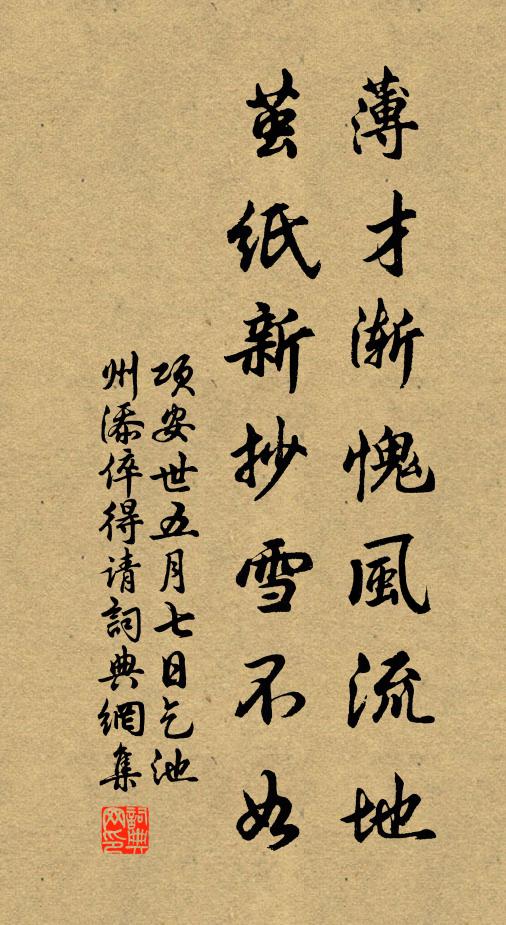 薄才渐愧風流地
茧纸新抄雪不如
项安世五月七日乞池
州添倅得请詞典網集
詞典网印